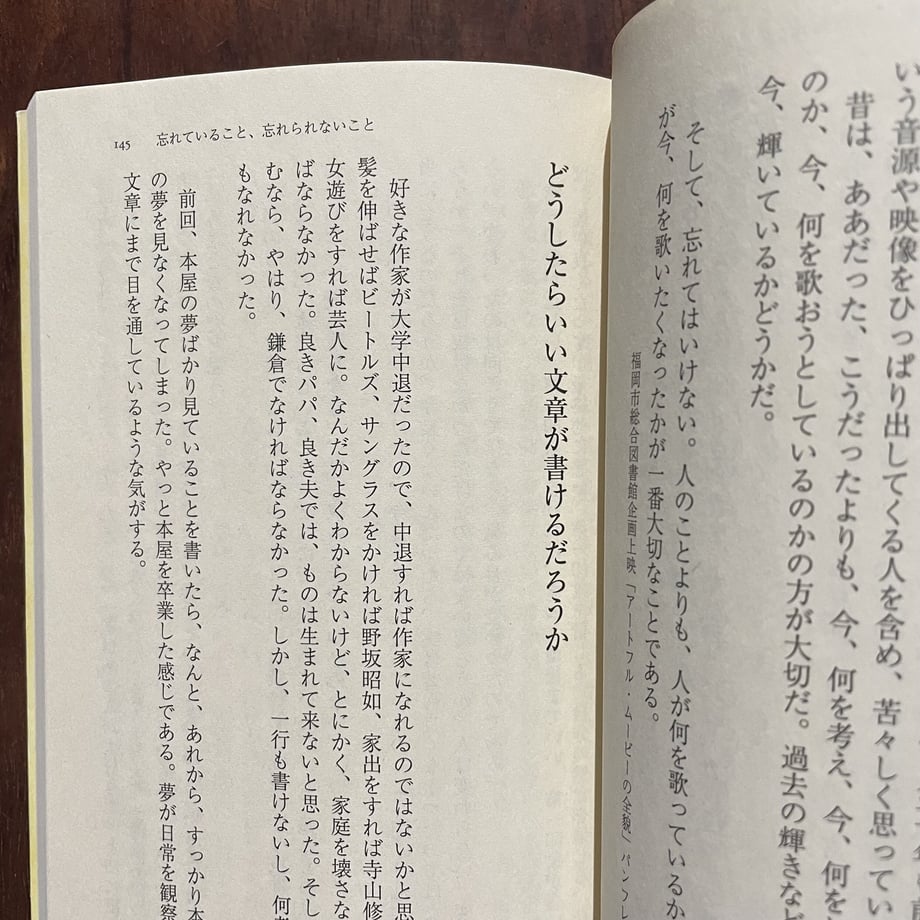 いう音源や映像をひっぱり出してくる人を含め、苦々しく思ってい
昔は、ああだった、こうだったよりも、今、何を考え、今、何を
のか、今、何を歌おうとしているのかの方が大切だ。過去の輝きな
今、輝いているかどうかだ。
そして、忘れてはいけない。人のことよりも、人が何を歌っているか
が今、何を歌いたくなったかが一番大切なことである。
福岡市総合図書館企画上映「アートフル・ムービーの全貌」パンフレ
145 忘れていること、忘れられないこと
どうしたらいい文章が書けるだろうか
好きな作家が大学中退だったので、中退すれば作家になれるのではないかと思
髪を伸ばせばビートルズ、サングラスをかければ野坂昭如、家出をすれば寺山修
女遊びをすれば芸人に。なんだかよくわからないけど、とにかく、家庭を壊さな
ばならなかった。良きパパ、良き夫では、ものは生まれて来ないと思った。そし
むなら、やはり、鎌倉でなければならなかった。しかし、一行も書けないし、何
もなれなかった。
前回、本屋の夢ばかり見ていることを書いたら、なんと、あれから、すっかり本
の夢を見なくなってしまった。やっと本屋を卒業した感じである。夢が日常を観察
文章にまで目を通しているような気がする。